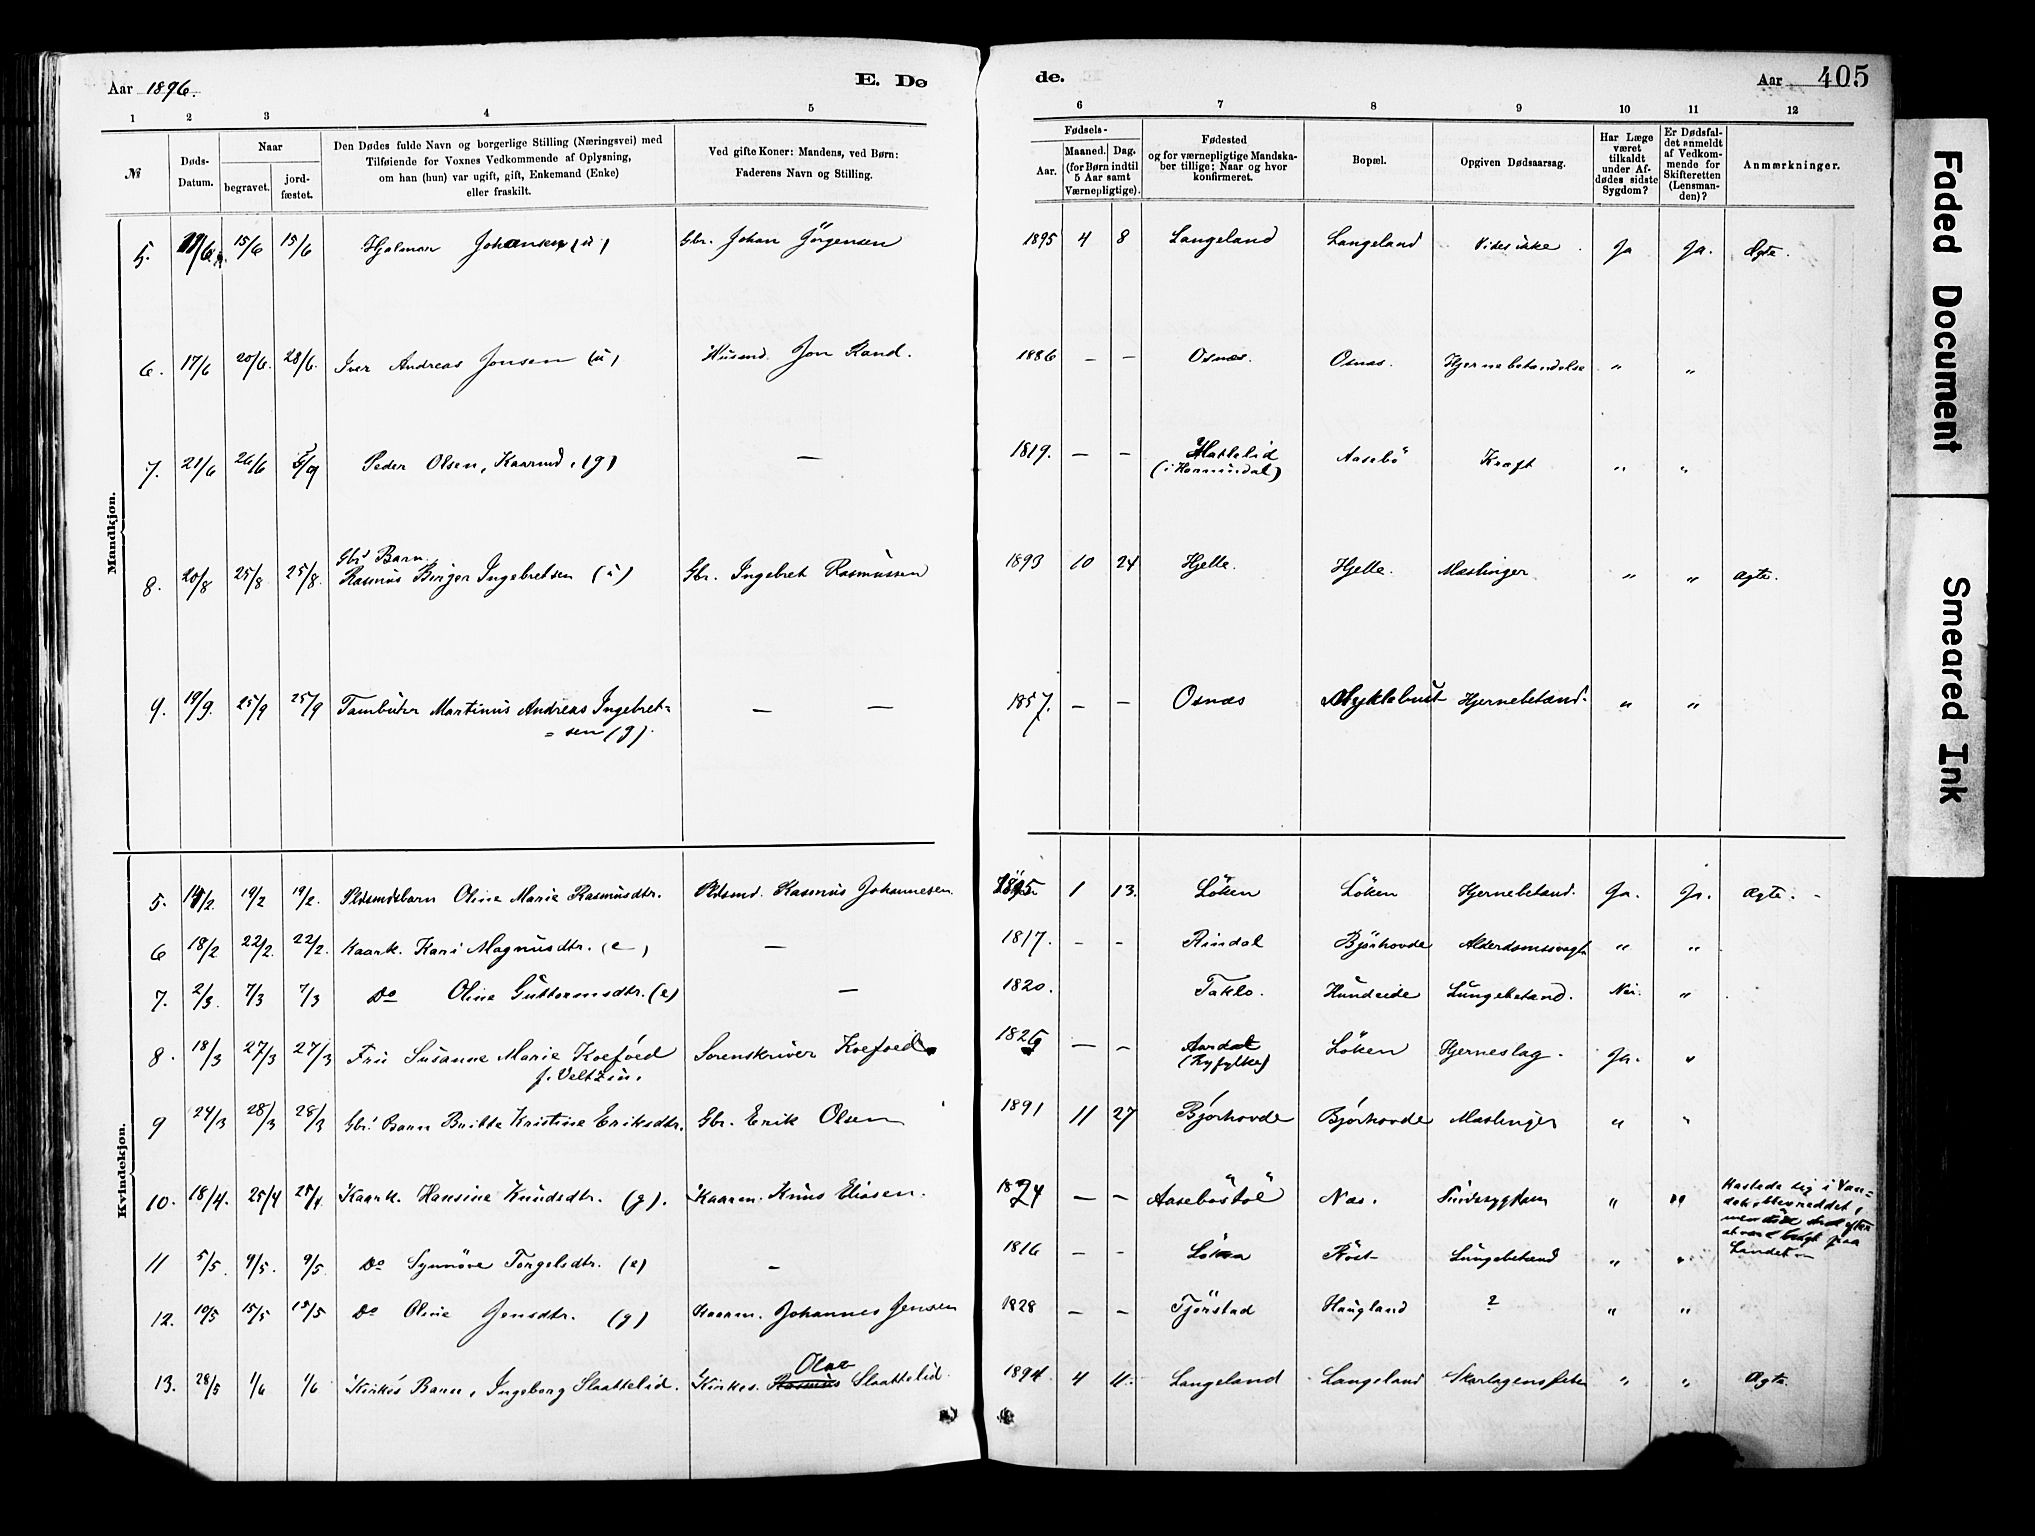 Aar 1896.
E. Dø
de.
Aar 405
1 2 3 4 5 6 7 8 9 10 11 12
№
Døds-Datum.
Naar
begravet.
jord-fæstet.
Den Dødes fulde Navn og borgerlige Stilling (Næringsvei) med
Tilføiende for Voxnes Vedkommende af Oplysning,
om han (hun) var ugift, gift, Enkemand (Enke)
eller fraskilt.
Ved gifte Koner: Mandens, ved Børn:
Faderens Navn og Stilling.
Fødsels-
Aar.
Maaned. Dag.
(for Børn indtil
5 Aar samt
Værnepligtige).
Fødested
og for værnepligtige Mandska-
ber tillige: Naar og hvor
konfirmeret.
Bopæl.
Opgiven Dødsaarsag.
Har Læge
været
tilkaldt
under Af-
dødes sidste
Sygdom?
Er Dødsfal-
det anmeldt
af Vedkom-
mende for
Skifteretten
(Lensman-
den)?
Anmærkninger.
Mandkjøn.
5. 15/6 15/6 Hjalmar Johansen (u) Gbr. Johan Jörgensen 1895 4 8 Langeland Langeland Vides ikke. Ja Ja. Ægte.
6. 17/6 20/6. 28/6. Iver Andreas Jonsen (u) Husmd. Jon Rand. 1886 — — Osnæs. Osnæs. Hjernebetændelse " "
7. 21/6 26/6 Peder Olsen, Kaarmd. (g) — 1819. — — Aasebö Kræft " "
(i Hornindal)
Gbr' Barn
8. 20/8 25/8 25/8. Rasmus Birger Ingebretsen (u) Gbr. Ingebret Rasmussen 1893 10 24 Hjelle. Hjelle. Mæslinger " " ægte.
9. 19/9. 25/9 25/9 Tambuter Martinus Andreas Ingebret= — — 1857. — — Osnæs Myklebust Hjernebetænd. " "
= sen (g).
Kvindekjøn.
5. 19/2 19/2. Pldsmdsbarn Oline Marie Rasmusdtr. Pldsmd. Rasmus Johannesen. 1895. 1 13. Löken Löken Hjernebetænd. Ja. Ja. Ægte.
6 18/2 22/2. 22/2. Kaark. Kari Magnusdtr. (e) — 1817. - - Rindal Bjørhovde Alderdomssvagh " "
7. 2/3. 7/3 7/3 Do Oline Guttormsdtr. (e) — 1820. Taklo. Hundeide Lungebetænd. Nei. "
8. 18/3 27/3 27/3 Fru Susanne Marie Koefoed Sorenskriver Koefoed — — Aardal Löken Hjerneslag. Ja. "
f. Veltzin.
(Ryfylke)
9 24/3 28/3 28/3 Gbr' Barn Britte Kristine Eriksdtr. Gbr. Erik Olsen 1891 11 27 Bjórhovde Bjórhovde Mæslinger " "
10. 18/4. 25/4 25/4 Kaark. Hansine Knudsdtr. (g). Kaarm. Knus Eliasen. 1824 — — Aasebøstöl Næs. Sindssygdom " " Kastede sig i Van=
det, blev reddet,
men død strax efter
at være bragt paa
Landet.
11 5/5. 9/5. 9/5 Do Synnöve Torgelsdtr. (e) — 1816 — — Löken Röst Lungebetænd " "
12. 10/5 15/5 15/5 Do Oline Jensdtr. (g) Kaarm. Johannes Jensen 1828 — — Tjörstad Haugland ? " "
Olav
13. 28/5 1/6 1/6 Kirkes Barn, Ingeborg Slaattelid. Kirkes. Rasmus Slaattelid. 1894. 4 11. Langeland Langeland Skarlagensfeber " " Ægte.
Faded Document
Smeared Ink